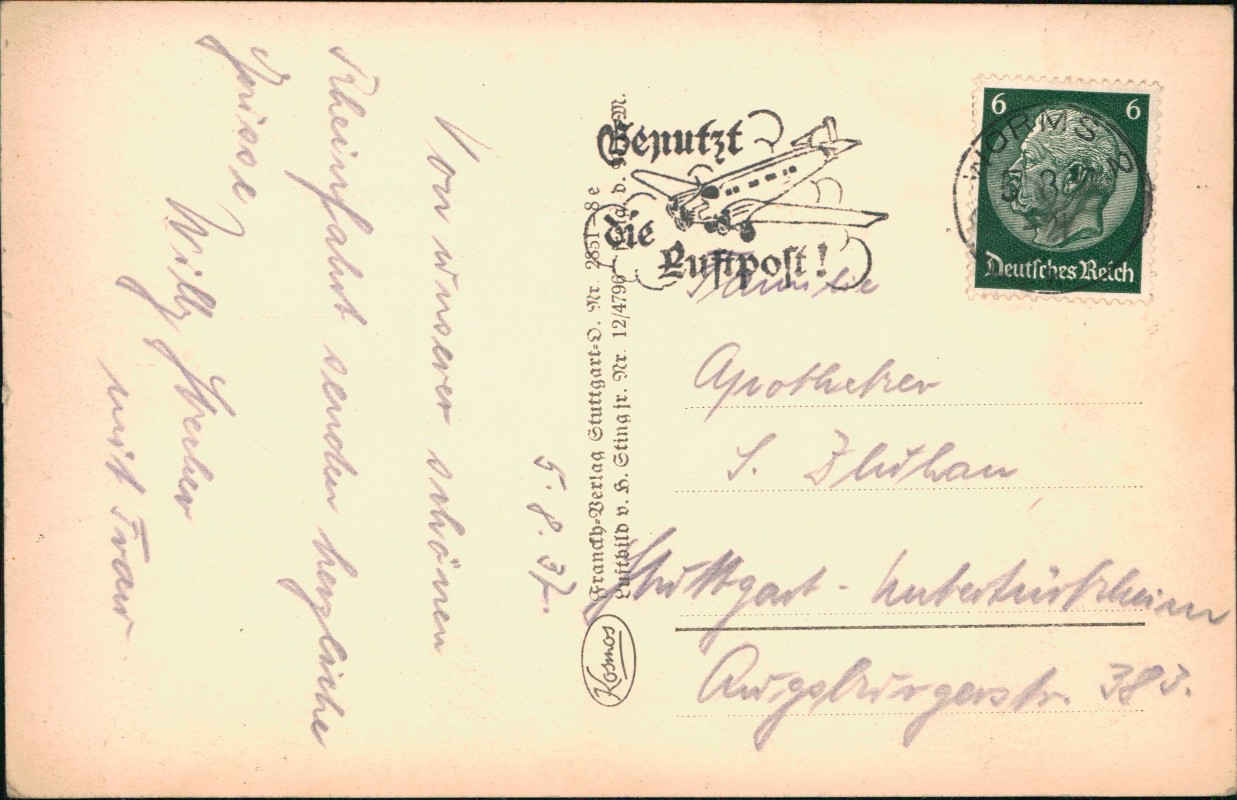 5. 8. 37.
Von unserer schönen
Rheinfahrt senden herzliche
Grüsse
Willy
mit Frau
Franckh-Verlag Stuttgart-O. Nr. 2851-8 e
Luftbild v. H. Stingfr. Nr. 12/4796
Kosmos
Benutzt
die
Luftpost!
6 6
Deutsches Reich
WORMS
Familie
Apotheker
Stuttgart - Untertürkheim
Augsburgerstr. 383.